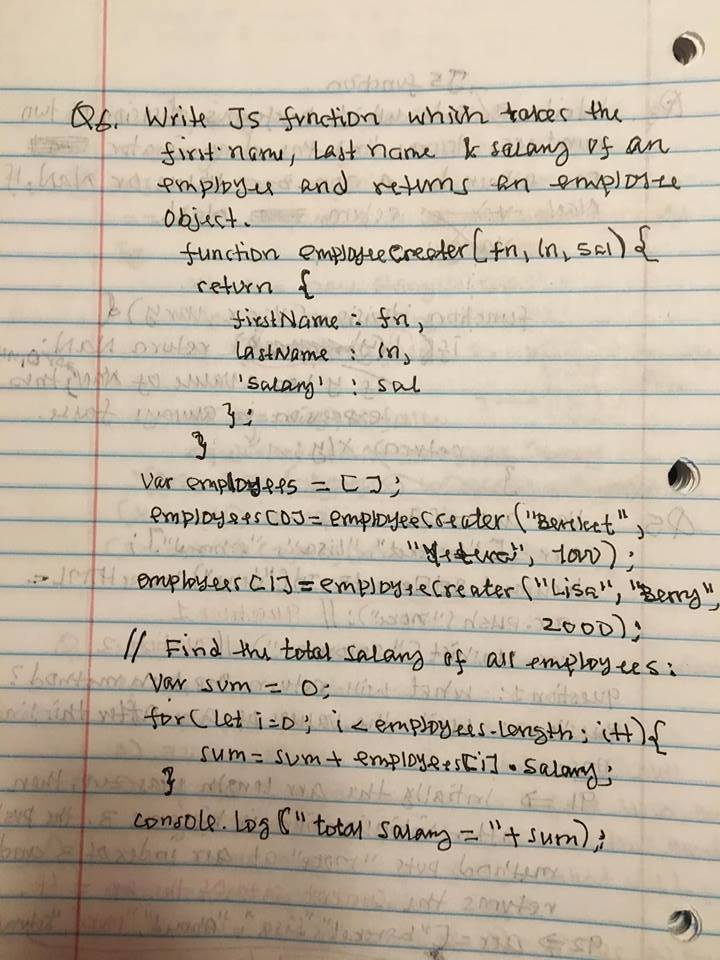 Q6. Write JS function which takes the
first name, last name & salary of an
employee and returns an employee
object.
function employeeCreater(fn, ln, sal) {
return {
firstName : fn,
lastName : ln,
'salary' : sal
};
}
var employees = [];
employees[0] = employeeCreater ("Bereket",
1000);
employees[1] = employeeCreater ("Lisa", "Berry",
2000);
// Find the total salary of all employees:
var sum = 0;
for( let i=0; i < employees.length; i++){
sum = sum + employees[i].salary;
}
console.log ("total salary = "+ sum);